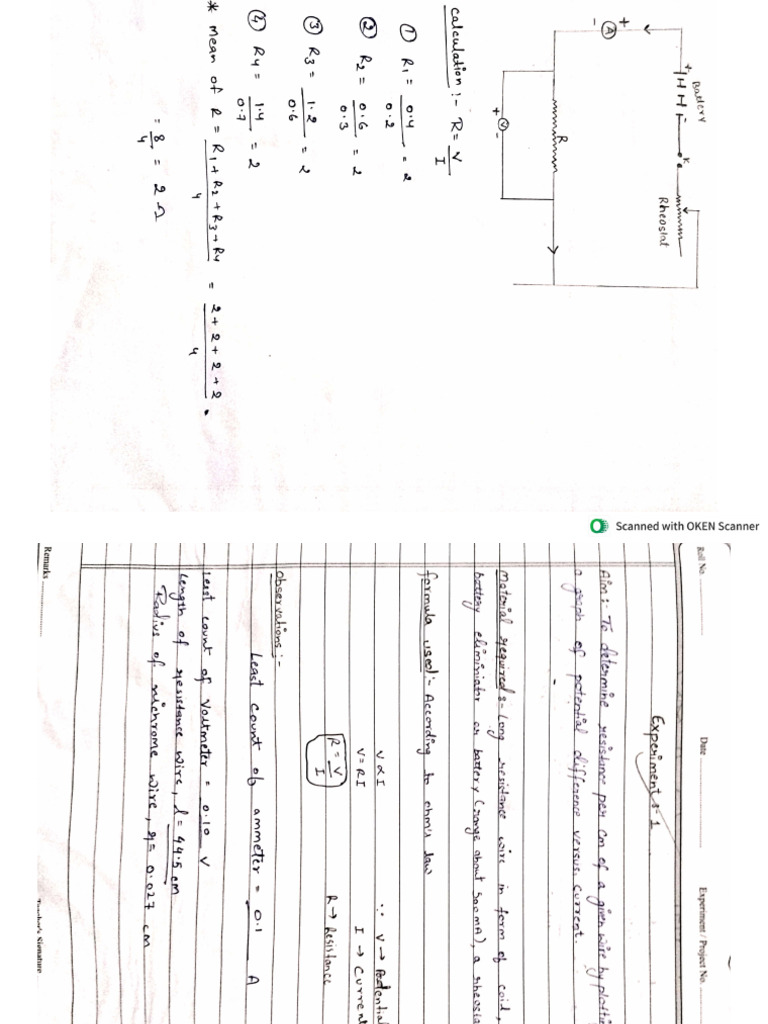 Battery
+
K
Rheostat
+
A
-
R
+
V
-
calculation :- R = V
I
① R1 = 0.4 = 2
0.2
② R2 = 0.6 = 2
0.3
③ R3 = 1.2 = 2
0.6
④ R4 = 1.4 = 2
0.7
* mean of R = R1 + R2 + R3 + R4 = 2 + 2 + 2 + 2 .
4 4
= 8 = 2 Ω
4
Scanned with OKEN Scanner
Roll No. Date Experiment / Project No.
Experiment :- 1
Aim :- To determine resistime per cm of a given wire by
a graph of potential difference versus. current.
Material required :- Long resistance wire in form of coil,
battery or battery (range about 500mA), a
formula used :- According to ohm's law
V ∝ I ∵ V →
V = RI I →
R = V R → Resistance
I
Observations :-
Least count of ammeter = 0.1 A
Least count of Voltmeter = 0.10 V
Length of resistance wire, l = 44.5 cm
Radius of nichrome wire, r = 0.027 cm
Remarks